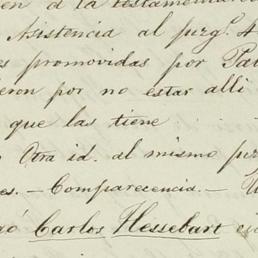 en á la testamentaria
Asistencia al juzg.º 4
es promovidas por
eron por no estar alli
que las tiene
Otra id. al mismo
es. — Comparecencia. —
ó Carlos Hessebart